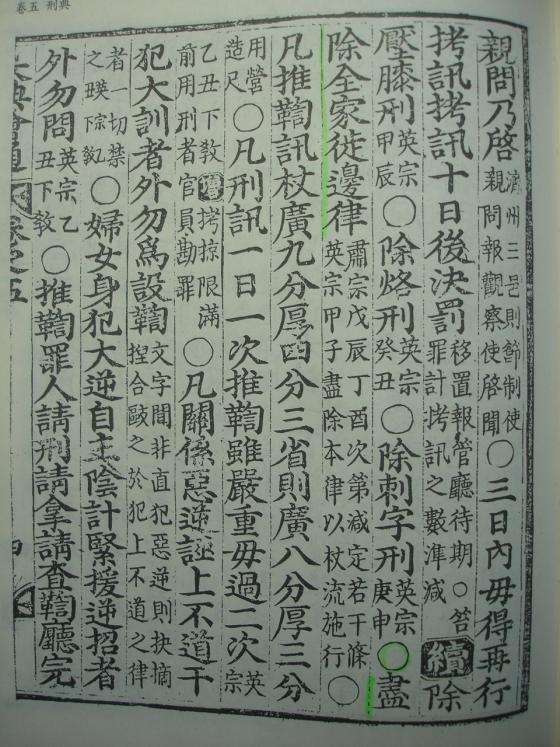 卷五 刑典
親問乃啓濟州三邑則節制使親問報觀察使啓聞○三日內毋得再行
拷訊拷訊十日後決罰移置報管廳待期○笞罪計拷訊之數準減續除
壓膝刑英宗甲辰○除烙刑英宗癸丑○除刺字刑英宗庚申○盡
除全家徙邊律肅宗戊辰丁酉次第減定若干條英宗甲子盡除本律以杖流施行○
凡推鞫訊杖廣九分厚四分三省則廣八分厚三分
用營造尺○凡刑訊一日一次推鞫雖嚴重毋過二次英宗
乙丑下敎增拷掠限滿前用刑者官員勘罪○凡關係惡逆誣上不道干
犯大訓者外勿爲設鞫文字間非直犯惡逆則抉摘捏合敺之於犯上不道之律
者一切禁之英宗下敎○婦女身犯大逆自主陰計緊援逆招者
外勿問英宗乙丑下敎○推鞫罪人請刑請拿請査鞫廳完
大典會通 卷之五 四